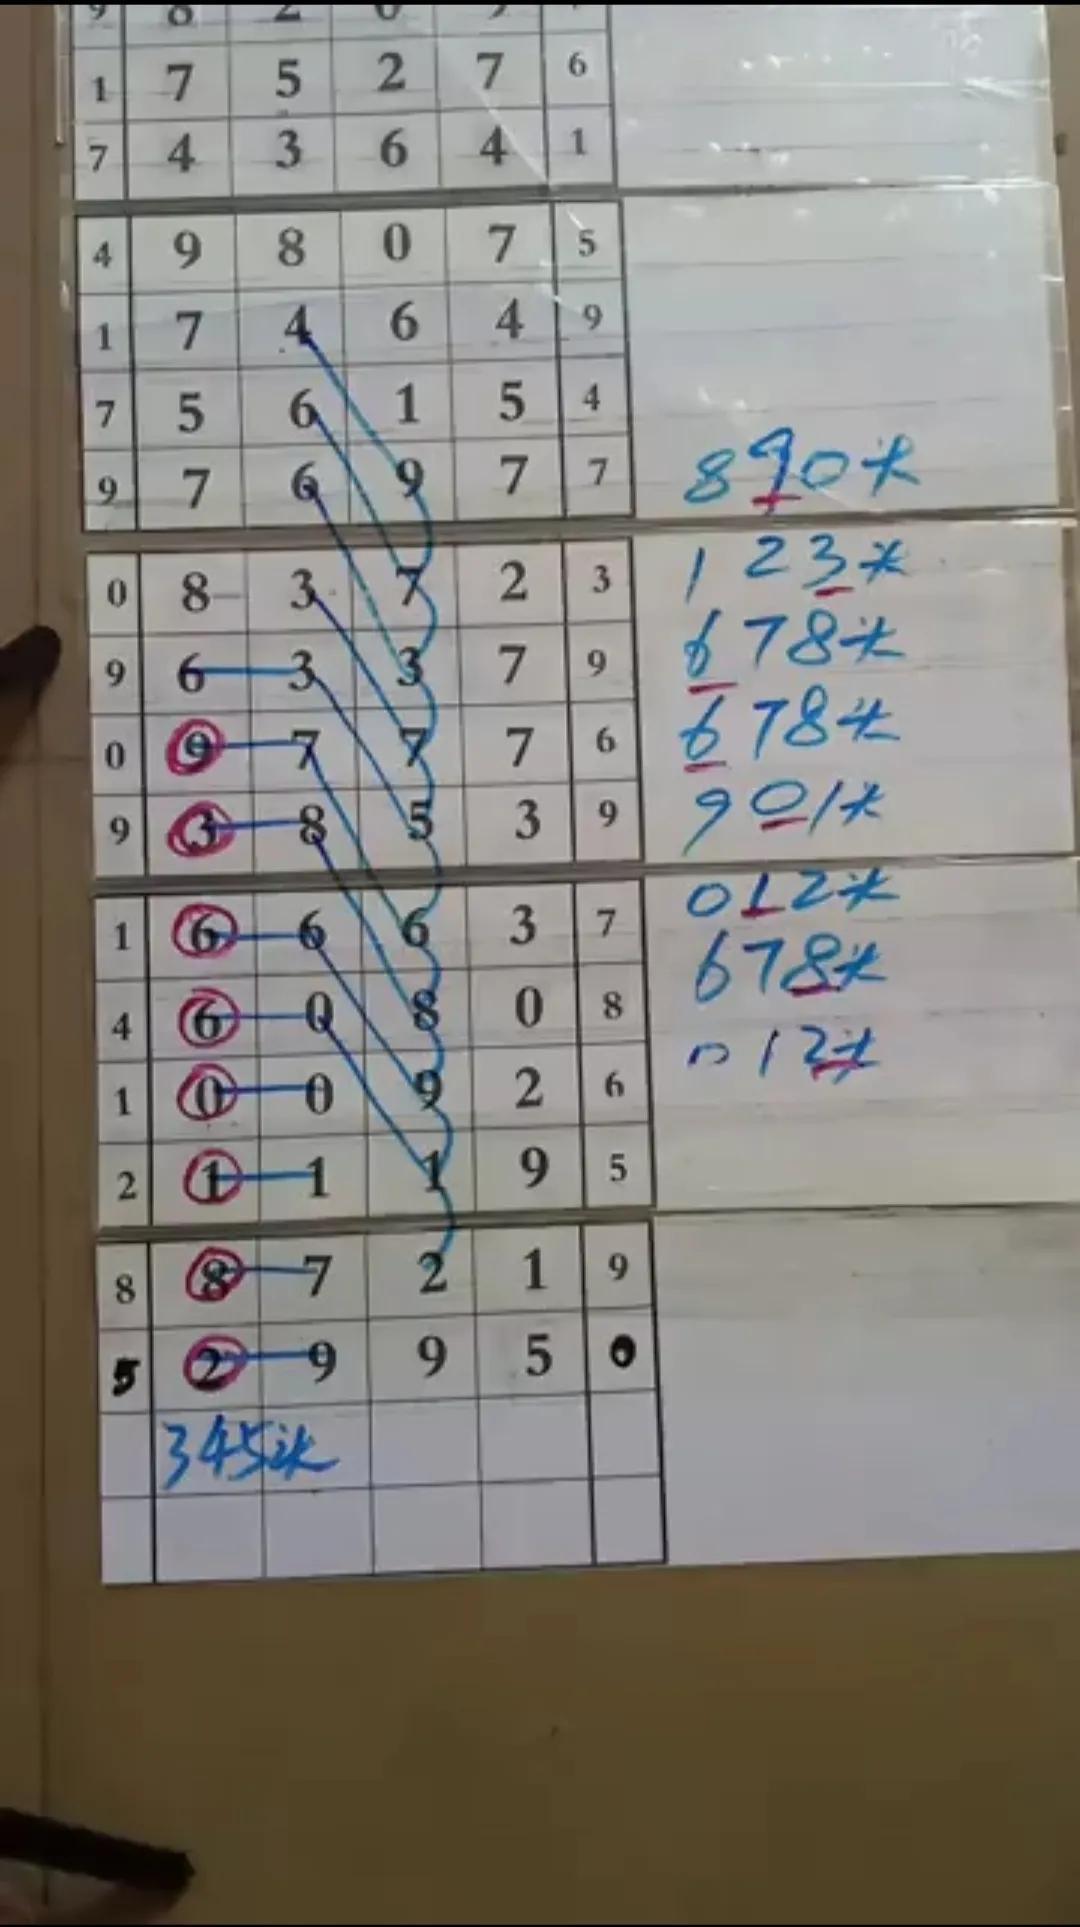 9 8 2 0 9
1 7 5 2 7 6
7 4 3 6 4 1
4 9 8 0 7 5
1 7 4 6 4 9
7 5 6 1 5 4
9 7 6 9 7 7 890米
0 8 3 7 2 3 123米
9 6 3 3 7 9 678米
0 9 7 7 7 6 678米
9 3 8 5 3 9 901米
1 6 6 6 3 7 012米
4 6 0 8 0 8 678米
1 0 0 9 2 6 012米
2 1 1 1 9 5
8 8 7 2 1 9
5 2 9 9 5 0
345米